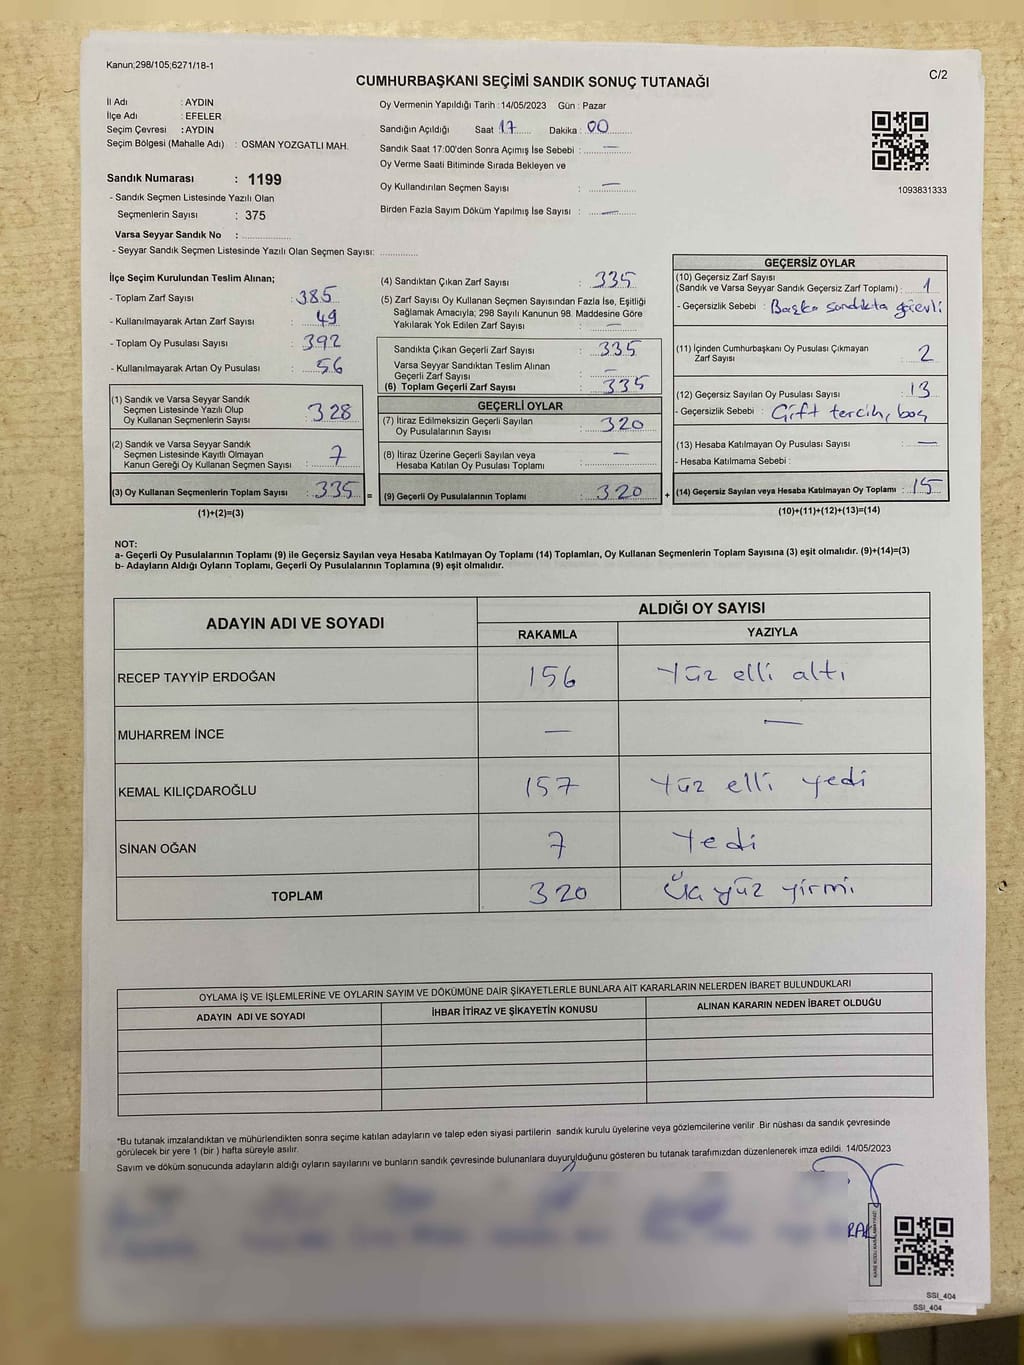 Kanun;298/105;6271/18-1
C/2
CUMHURBAŞKANI SEÇİMİ SANDIK SONUÇ TUTANAĞI
İl Adı : AYDIN
İlçe Adı : EFELER
Seçim Çevresi : AYDIN
Seçim Bölgesi (Mahalle Adı) : OSMAN YOZGATLI MAH.
Sandık Numarası : 1199
- Sandık Seçmen Listesinde Yazılı Olan
Seçmenlerin Sayısı : 375
Varsa Seyyar Sandık No :
- Seyyar Sandık Seçmen Listesinde Yazılı Olan Seçmen Sayısı:
Oy Vermenin Yapıldığı Tarih : 14/05/2023 Gün : Pazar
Sandığın Açıldığı Saat 17 Dakika : 00
Sandık Saat 17:00'den Sonra Açımış İse Sebebi : —
Oy Verme Saati Bitiminde Sırada Bekleyen ve
Oy Kullandırılan Seçmen Sayısı : —
Birden Fazla Sayım Döküm Yapılmış İse Sayısı : —
1093831333
İlçe Seçim Kurulundan Teslim Alınan;
- Toplam Zarf Sayısı : 385
- Kullanılmayarak Artan Zarf Sayısı : 49
- Toplam Oy Pusulası Sayısı : 392
- Kullanılmayarak Artan Oy Pusulası : 56
(1) Sandık ve Varsa Seyyar Sandık
Seçmen Listesinde Yazılı Olup
Oy Kullanan Seçmenlerin Sayısı : 328
(2) Sandık ve Varsa Seyyar Sandık
Seçmen Listesinde Kayıtlı Olmayan
Kanun Gereği Oy Kullanan Seçmen Sayısı : 7
(3) Oy Kullanan Seçmenlerin Toplam Sayısı : 335 =
(1)+(2)=(3)
(4) Sandıktan Çıkan Zarf Sayısı : 335
(5) Zarf Sayısı Oy Kullanan Seçmen Sayısından Fazla İse, Eşitliği
Sağlamak Amacıyla; 298 Sayılı Kanunun 98. Maddesine Göre
Yakılarak Yok Edilen Zarf Sayısı : —
Sandıkta Çıkan Geçerli Zarf Sayısı : 335
Varsa Seyyar Sandıktan Teslim Alınan
Geçerli Zarf Sayısı : —
(6) Toplam Geçerli Zarf Sayısı : 335
GEÇERLİ OYLAR
(7) İtiraz Edilmeksizin Geçerli Sayılan
Oy Pusulalarının Sayısı : 320
(8) İtiraz Üzerine Geçerli Sayılan veya
Hesaba Katılan Oy Pusulası Toplamı : —
(9) Geçerli Oy Pusulalarının Toplamı : 320 +
GEÇERSİZ OYLAR
(10) Geçersiz Zarf Sayısı
(Sandık ve Varsa Seyyar Sandık Geçersiz Zarf Toplamı) : 1
- Geçersizlik Sebebi : Başka sandıkta görevli
(11) İçinden Cumhurbaşkanı Oy Pusulası Çıkmayan
Zarf Sayısı : 2
(12) Geçersiz Sayılan Oy Pusulası Sayısı : 13
- Geçersizlik Sebebi : Çift tercih, boş
(13) Hesaba Katılmayan Oy Pusulası Sayısı : —
- Hesaba Katılmama Sebebi :
(14) Geçersiz Sayılan veya Hesaba Katılmayan Oy Toplamı : 15
(10)+(11)+(12)+(13)=(14)
NOT:
a- Geçerli Oy Pusulalarının Toplamı (9) ile Geçersiz Sayılan veya Hesaba Katılmayan Oy Toplamı (14) Toplamları, Oy Kullanan Seçmenlerin Toplam Sayısına (3) eşit olmalıdır. (9)+(14)=(3)
b- Adayların Aldığı Oyların Toplamı, Geçerli Oy Pusulalarının Toplamına (9) eşit olmalıdır.
ADAYIN ADI VE SOYADI
ALDIĞI OY SAYISI
RAKAMLA YAZIYLA
RECEP TAYYİP ERDOĞAN 156 Yüz elli altı
MUHARREM İNCE — —
KEMAL KILIÇDAROĞLU 157 Yüz elli yedi
SİNAN OĞAN 7 Yedi
TOPLAM 320 Üç yüz yirmi
OYLAMA İŞ VE İŞLEMLERİNE VE OYLARIN SAYIM VE DÖKÜMÜNE DAİR ŞİKAYETLERLE BUNLARA AİT KARARLARIN NELERDEN İBARET BULUNDUKLARI
ADAYIN ADI VE SOYADI İHBAR İTİRAZ VE ŞİKAYETİN KONUSU ALINAN KARARIN NEDEN İBARET OLDUĞU
*Bu tutanak imzalandıktan ve mühürlendikten sonra seçime katılan adayların ve talep eden siyasi partilerin sandık kurulu üyelerine veya gözlemcilerine verilir. Bir nüshası da sandık çevresinde
görülecek bir yere 1 (bir ) hafta süreyle asılır.
Sayım ve döküm sonucunda adayların aldığı oyların sayılarını ve bunların sandık çevresinde bulunanlara duyurulduğunu gösteren bu tutanak tarafımızdan düzenlenerek imza edildi. 14/05/2023
SSI_404
SSI_404